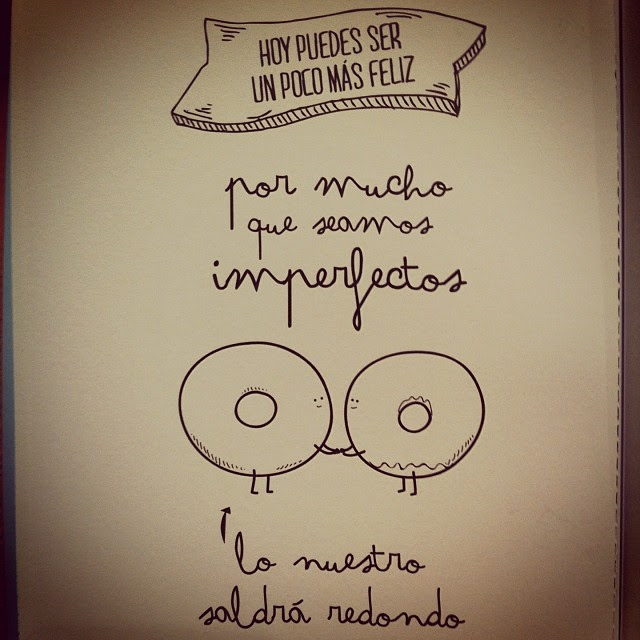 HOY PUEDES SER
UN POCO MÁS FELIZ
por mucho
que seamos
imperfectos
lo nuestro
saldrá redondo